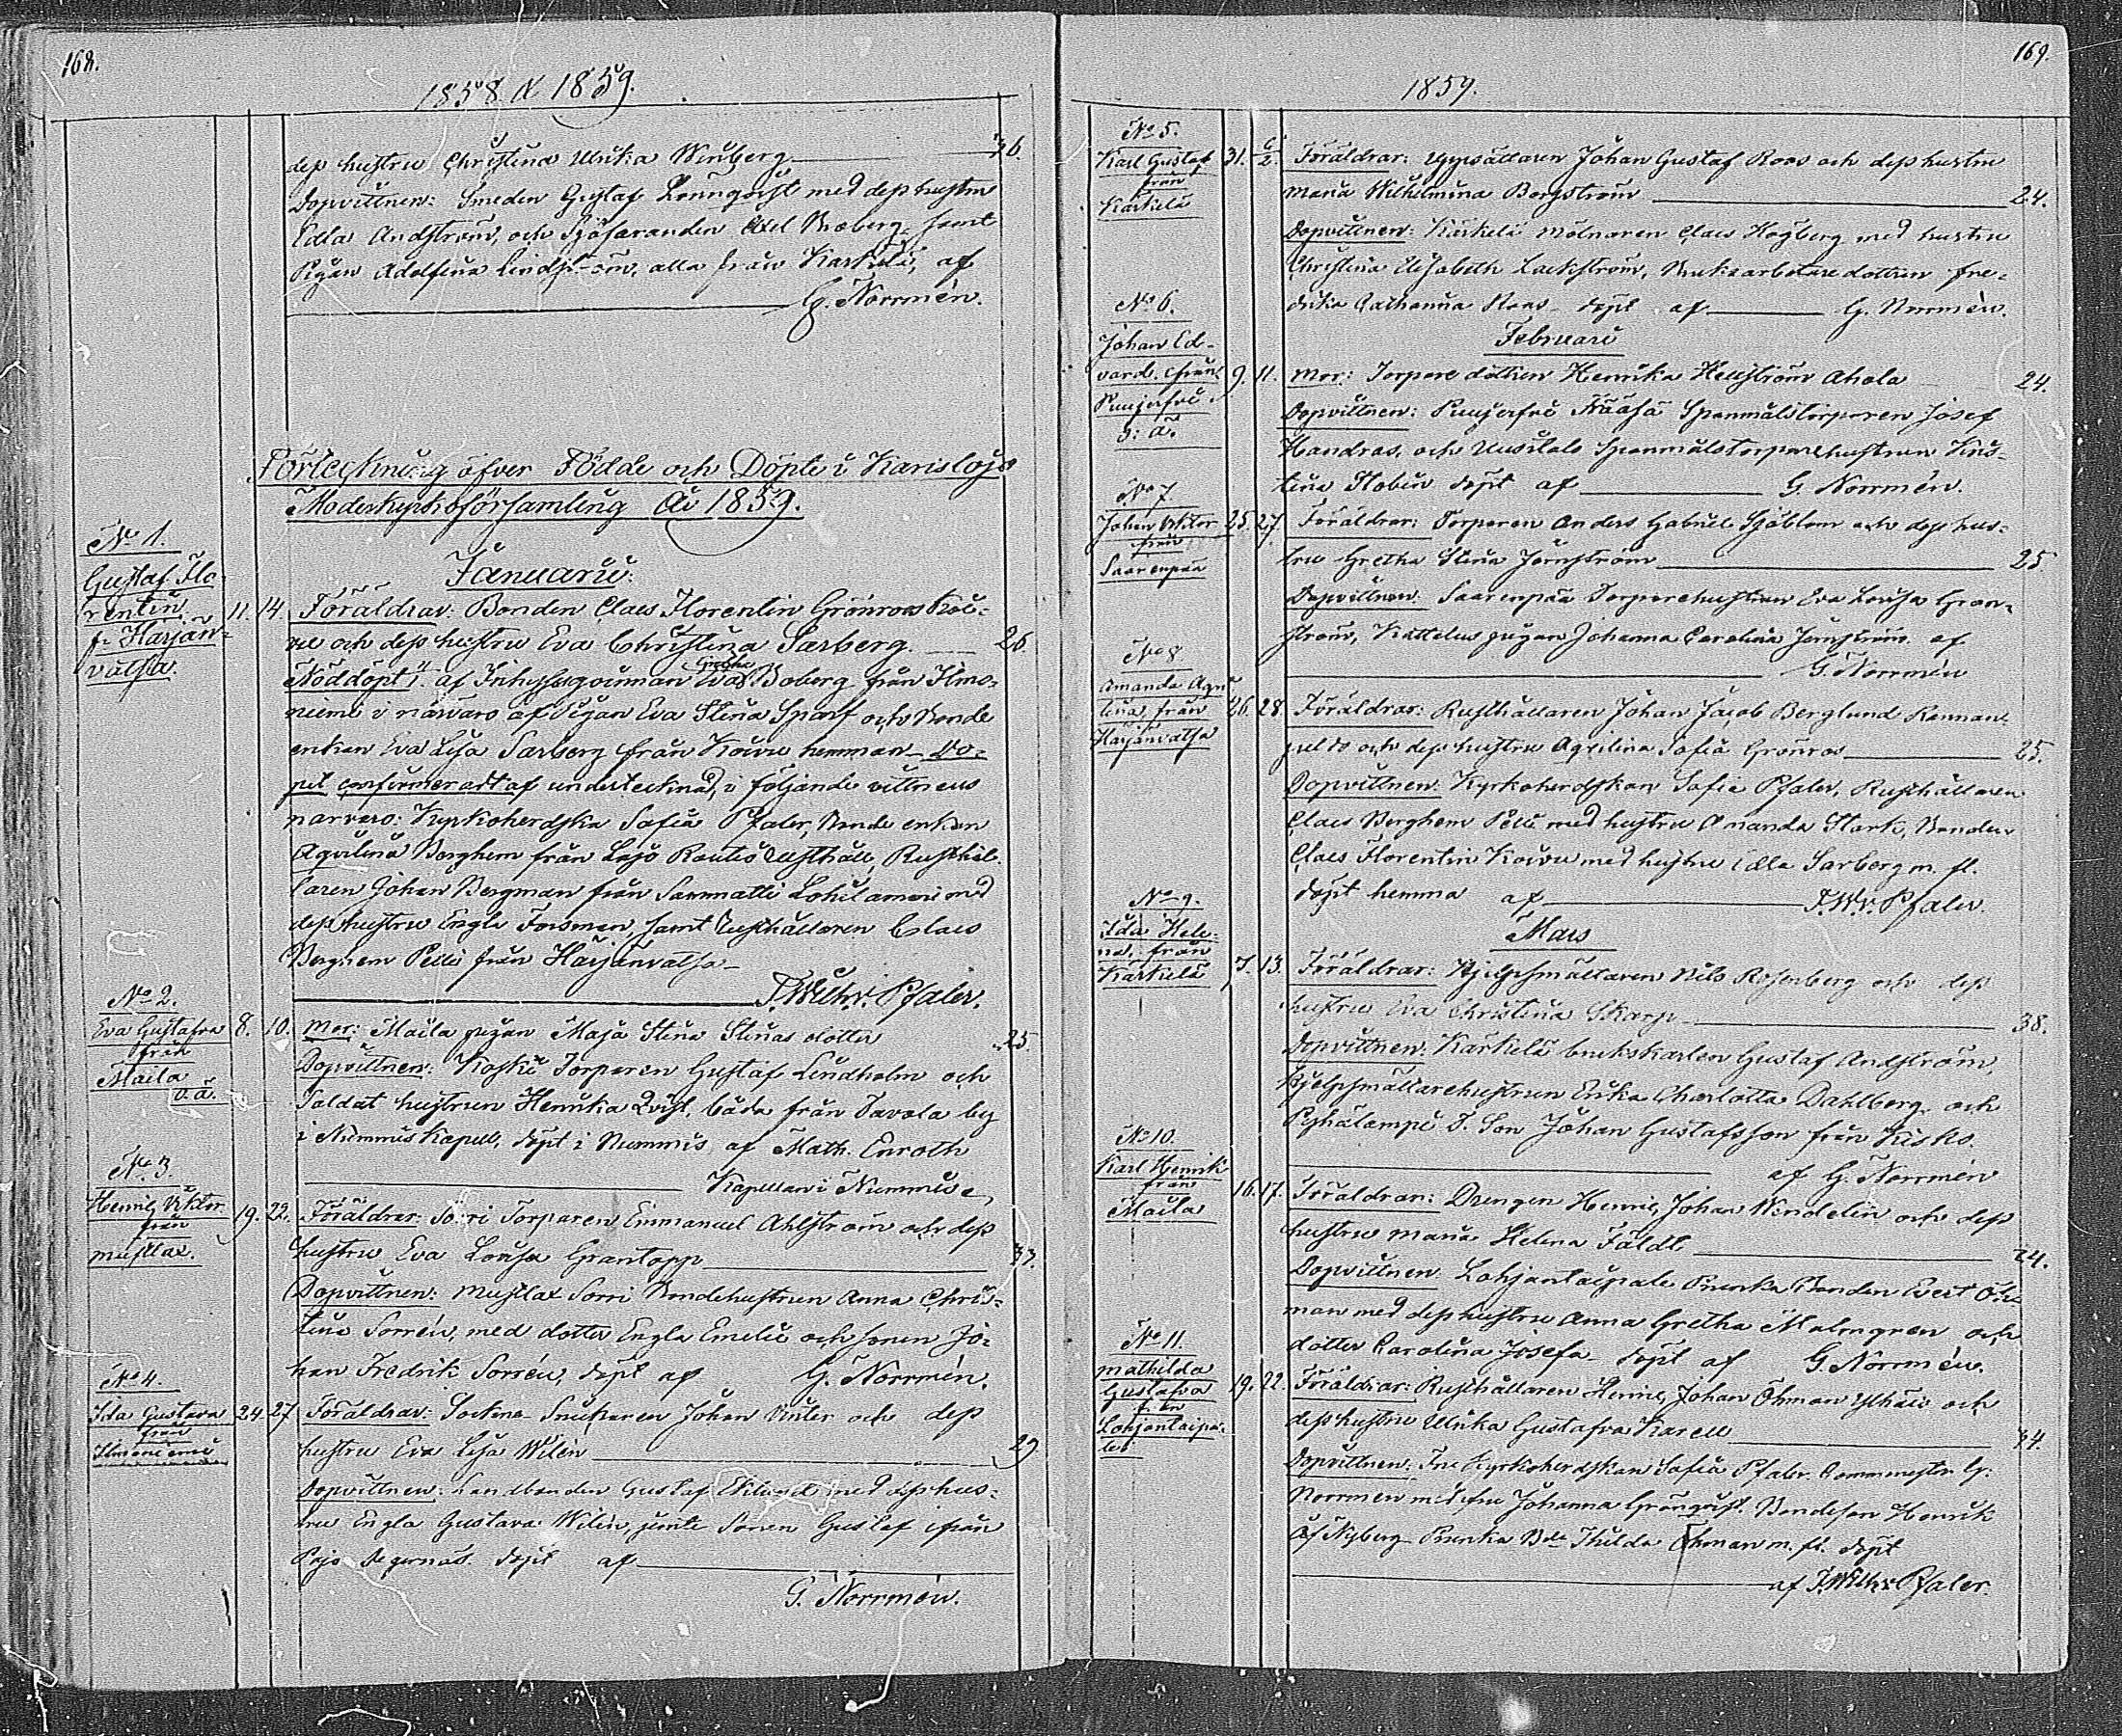 168.
1858 & 1859.
dess hustru Christina Ulrika Winberg 36.
Dopvittnen: Smeden Gustaf Lönnqvist med dess hustru
Edla Andström, och Sjöfaranden Axel Broberg samt
Pigan Adolfina Lindström, alla från Karkela, af
G. Norrmén.
Förteckning öfver Födde och Döpte i Karislojo
Moderkyrkoförsamling År 1859.
Januarii.
No 1.
Gustaf Flo-
rentin
f. Harjan-
vatsa.
11. 14. Föräldrar: Bonden Claes Florentin Grönroos Koi-
vu och dess hustru Eva Christina Sarberg. 26.
Nöddöpt af Inhysesqvinnan Eva Greta Boberg från Ilmo-
niemi i närvaro af Pigan Eva Stina Sparf och Bonde
enkan Eva Lisa Sarberg från Koivu hemman. Do-
pet confirmeradt af undertecknad, i följande vittnens
närvaro: Kyrkoherdska Sofia Pfaler, Bonde enkan
Aqvilina Berghem från Lojo Rusthåll, Rusthål-
laren Johan Bergman från Sammatti Lohilampi med
dess hustru Engla Forsman, samt Rusthållaren Claes
Berghem Pelli från Harjanvatsa
F. Wilh. v. Pfaler.
No 2.
Eva Gustafva
från
Maila
o. ä.
8. 10. Mor: Maila pigan Maja Stina Stinas dotter 25.
Dopvittnen: Koski Torparen Gustaf Lindholm och
Soldat hustrun Henrika Qvist, båda från Tavola by
i Nummis Kapell, döpt i Nummis af Math. Enroth
Kapellan i Nummis
No 3.
Henric Viktor
från
Mustlax.
19. 22. Föräldrar: Sorri Torparen Emmanuel Ahlström och dess
hustru Eva Lovisa Grantopp 33.
Dopvittnen: Mustlax Sorri Bondehustrun Anna Chris-
tina Sorrén, med dotter Engla Emelie och sonen Jo-
han Fredrik Sorrén, döpt af G. Norrmén.
No 4.
Ida Gustava
från
Ilmoniemi
24. 27. Föräldrar: Sockne Snickaren Johan Vinter och dess
hustru Eva Lisa Wilén 29.
Dopvittnen: Landbonden Gustaf Eklund med dess hus-
tru Engla Gustava Wilén, jemte Sonen Gustaf ifrån
Pojo Degernäs. döpt af
G. Norrmén.
169.
1859.
No 5.
Karl Gustaf
från
Karkela
31. 6/2. Föräldrar: Uppsättaren Johan Gustaf Roos och dess hustru
Maria Wilhelmina Bergström 24.
Dopvittnen: Karkela Mölnaren Claes Högberg med hustru
Christina Elisabeth Lackström, Bruksarbetare dottren Fre-
drika Catharina Roos döpt af G. Norrmén.
Februarii
No 6.
Johan Ed-
vard från
o. ä.
9. 11. Mor: Torpare dottren Henrika Hellström Ahola 24.
Dopvittnen: Spanmålstorparen Josef
Handros, och Uusitalo Spanmålstorparehustrun Kris-
tina döpt af G. Norrmén.
No 7
Johan Viktor
från
Saarenpää
25. 27. Föräldrar: Torparen Anders Gabriel Sjöblom och dess hus-
tru Gretha Stina Jernström 25
Dopvittnen: Saarenpää Torparehustrun Eva Lovisa Gran-
ström, Kattelus pigan Johanna Carolina Jernström af
G. Norrmén
No 8
Amanda Aqvi-
lina, från
Harjanvatsa
26. 28. Föräldrar: Rusthållaren Johan Jacob Berglund Rannan-
pelto och dess hustru Aqvilina Sofia Grönroos 25.
Dopvittnen: Kyrkoherdskan Sofia Pfaler, Rusthållaren
Claes Berghem Pelli med hustru Amanda Stark, Bonden
Claes Florentin Koivu med hustru Edla Sarberg m. fl.
döpt hemma af F. W. v. Pfaler.
Mars
No 9.
Ida Hele-
na, från
Karkela
7. 13. Föräldrar: Hjelpsmältaren Nils Rosenberg och dess
hustru Eva Christina Skarp 38.
Dopvittnen: Karkela brukskarlen Gustaf Andström,
Hjelpsmältarehustrun Erika Charlotta Dahlberg och
Pyhälampi T. Son Johan Gustafsson från Kisko.
af G. Norrmén
No 10.
Karl Henrik
från
Maila
16. 17. Föräldrar: Drengen Henric Johan Wendelin och dess
hustru Maria Helena Fäldt 24.
Dopvittnen: Lohjantaipale Prunka Bonden Evert Öh-
man med dess hustru Anna Gretha Malmgren och
dotter Carolina Josefa döpt af G. Norrmén.
No 11.
Mathilda
Gustafva
från
Lohjantaipa-
le
19. 22. Föräldrar: Rusthållaren Henric Johan Öhman Ylhäis och
dess hustru Ulrika Gustafva Karell 34.
Dopvittnen: Fru Kyrkoherdskan Sofia Pfaler. Commin​ister G.
Norrmén med fru Johanna Grönqvist. Bondeson Henrik
Af Nyberg Prunka Thilda Öhman m. fl. döpt
af F. Wilh. v. Pfaler.